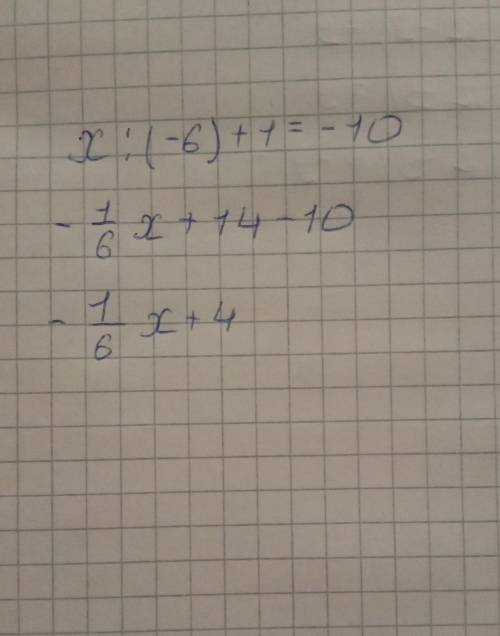 x : (-6) + 1 = -10
- 1/6 x + 14 - 10
- 1/6 x + 4